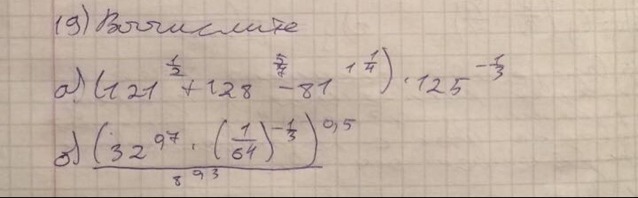 19) Вычислите
а) (121^{\frac{1}{2}} + 128^{\frac{5}{7}} - 81^{1\frac{1}{4}}) · 125^{-\frac{1}{3}}
б) \frac{(32^{0,7} · (\frac{1}{64})^{-\frac{1}{3}})^{0,5}}{8^{0,3}}